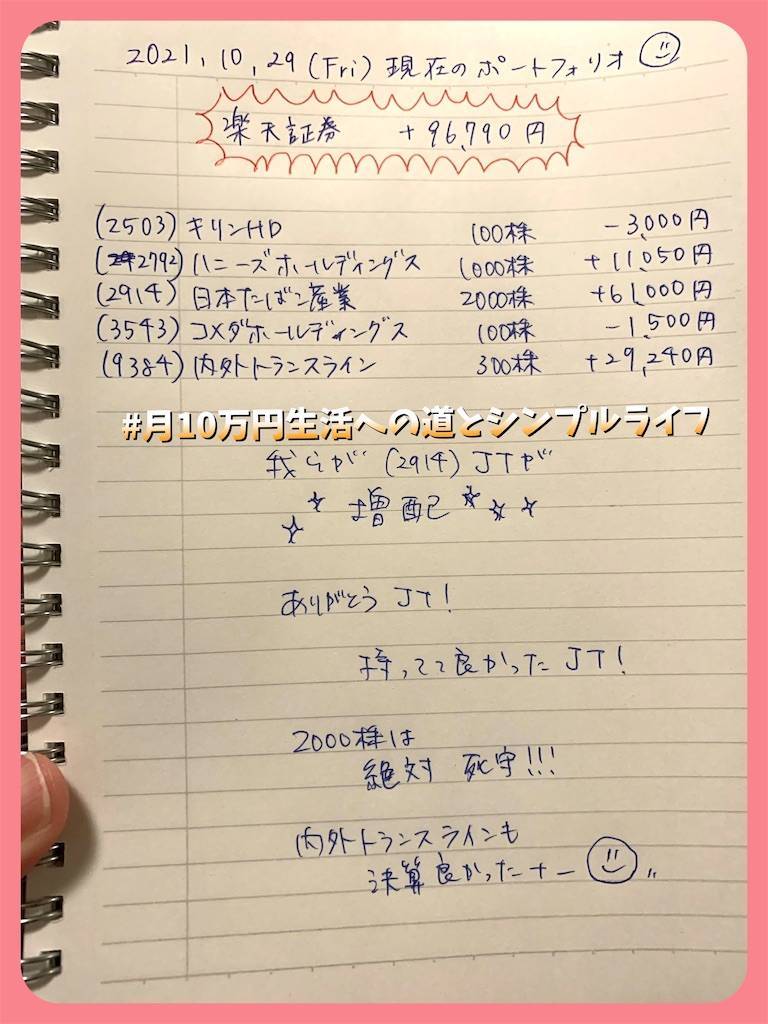 2021.10.29(Fri)現在のポートフォリオ
楽天証券 +96,790円
(2503)キリンHD 100株 -3,000円
(2792)ハニーズホールディングス 1000株 +11,050円
(2914)日本たばこ産業 2000株 +61,000円
(3543)コメダホールディングス 100株 -1,500円
(9384)内外トランスライン 300株 +29,240円
#月10万円生活への道とシンプルライフ
我らが(2914)JTが
☆☆増配☆☆☆
ありがとうJT!
持ってて良かったJT!
2000株は
絶対 死守!!!
内外トランスラインも
決算良かったナー